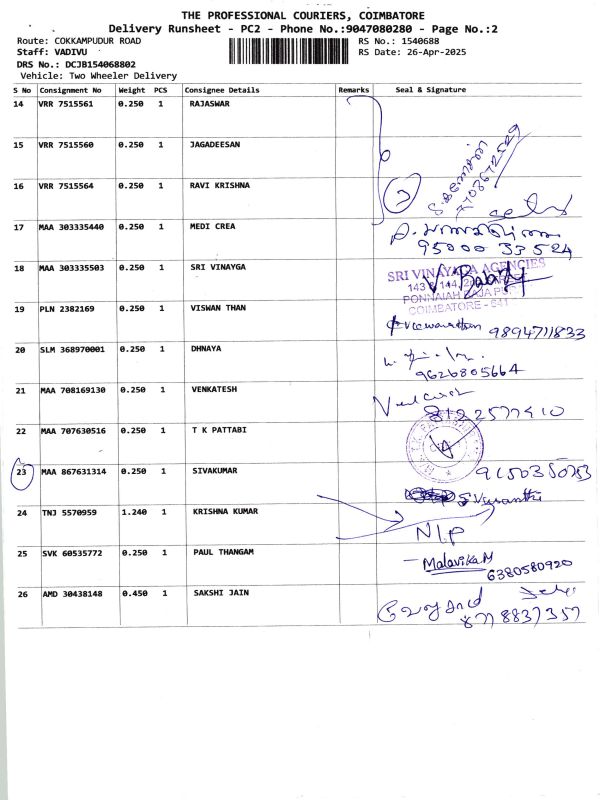 THE PROFESSIONAL COURIERS, COIMBATORE
Delivery Runsheet - PC2 - Phone No.:9047080280 - Page No.:2
Route: COKKAMPUDUR ROAD
Staff: VADIVU
DRS No.: DCJB154068802
Vehicle: Two Wheeler Delivery
RS No.: 1540688
RS Date: 26-Apr-2025
S No Consignment No Weight PCS Consignee Details Remarks Seal & Signature
14 VRR 7515561 0.250 1 RAJASWAR
15 VRR 7515560 0.250 1 JAGADEESAN
16 VRR 7515564 0.250 1 RAVI KRISHNA
17 MAA 303335440 0.250 1 MEDI CREA
95000 33524
18 MAA 303335503 0.250 1 SRI VINAYGA
SRI VINAYAGA AGENCIES
COIMBATORE - 641
19 PLN 2382169 0.250 1 VISWAN THAN
9894711833
20 SLM 368970001 0.250 1 DHNAYA
9626805664
21 MAA 708169130 0.250 1 VENKATESH
22 MAA 707630516 0.250 1 T K PATTABI
23 MAA 867631314 0.250 1 SIVAKUMAR
24 TNJ 5570959 1.240 1 KRISHNA KUMAR
N/P
25 SVK 60535772 0.250 1 PAUL THANGAM
Malavika M
6380580920
26 AMD 30438148 0.450 1 SAKSHI JAIN